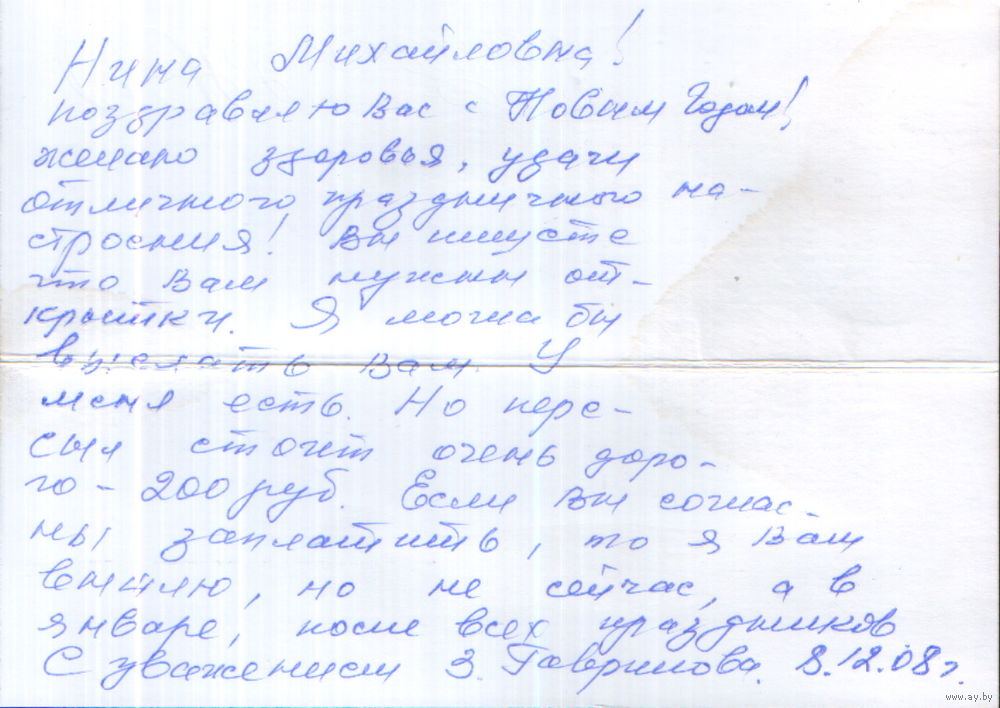 Нина Михайловна!
поздравляю Вас с Новым Годом!
желаю здоровья, удачи
отличного праздничного на-
строения! Вы пишете
что Вам нужны от-
крытки. Я могла бы
выслать Вам. У
меня есть. Но перес-
сыл стоит очень доро-
го - 200 руб. Если Вы соглас-
ны заплатить, то я Вам
вышлю, но не сейчас, а в
январе, после всех праздников
С уважением З. Гаврилова. 8.12.08 г.
www.ay.by